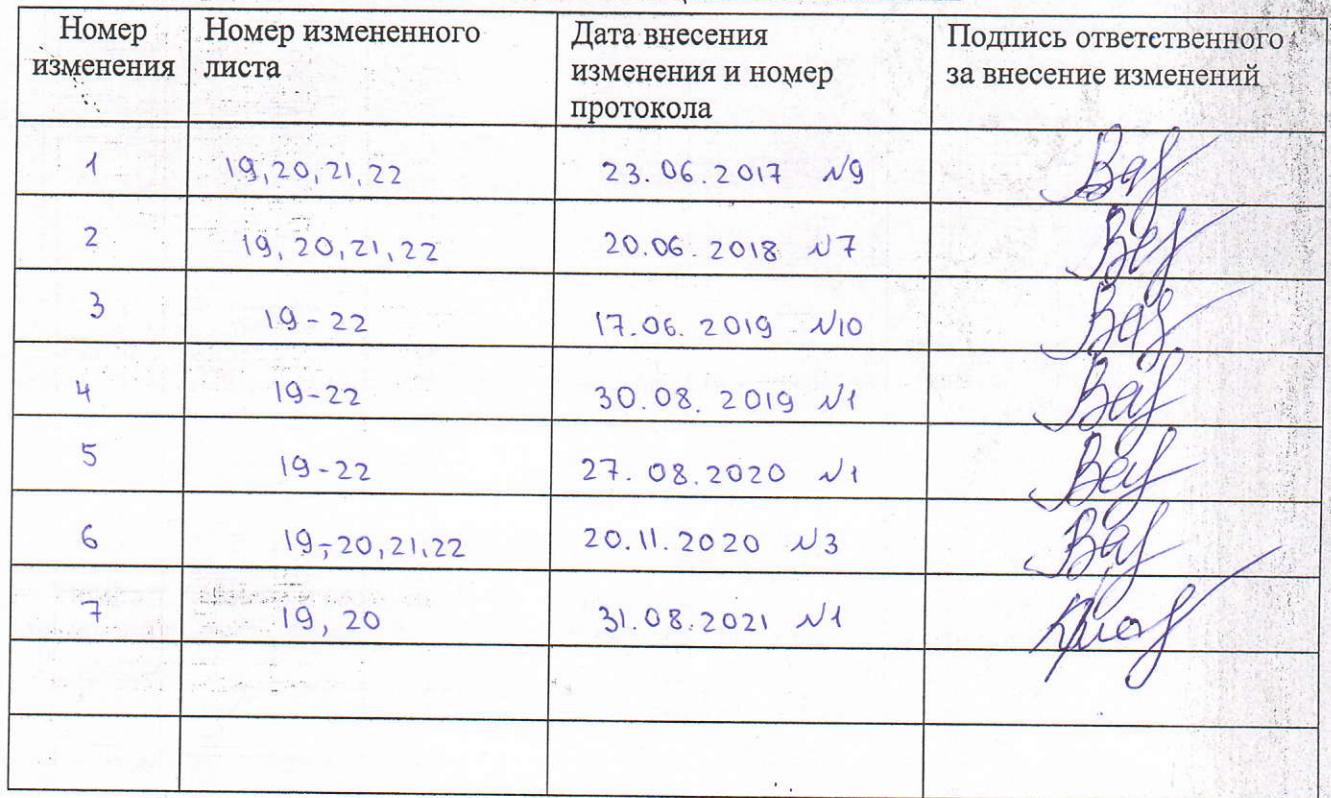 Номер изменения | Номер измененного листа | Дата внесения изменения и номер протокола | Подпись ответственного за внесение изменений
1 | 19,20,21,22 | 23.06.2017 №9
2 | 19,20,21,22 | 20.06.2018 №7
3 | 19-22 | 17.06.2019 №10
4 | 19-22 | 30.08.2019 №1
5 | 19-22 | 27.08.2020 №1
6 | 19-20,21,22 | 20.11.2020 №3
7 | 19, 20 | 31.08.2021 №1